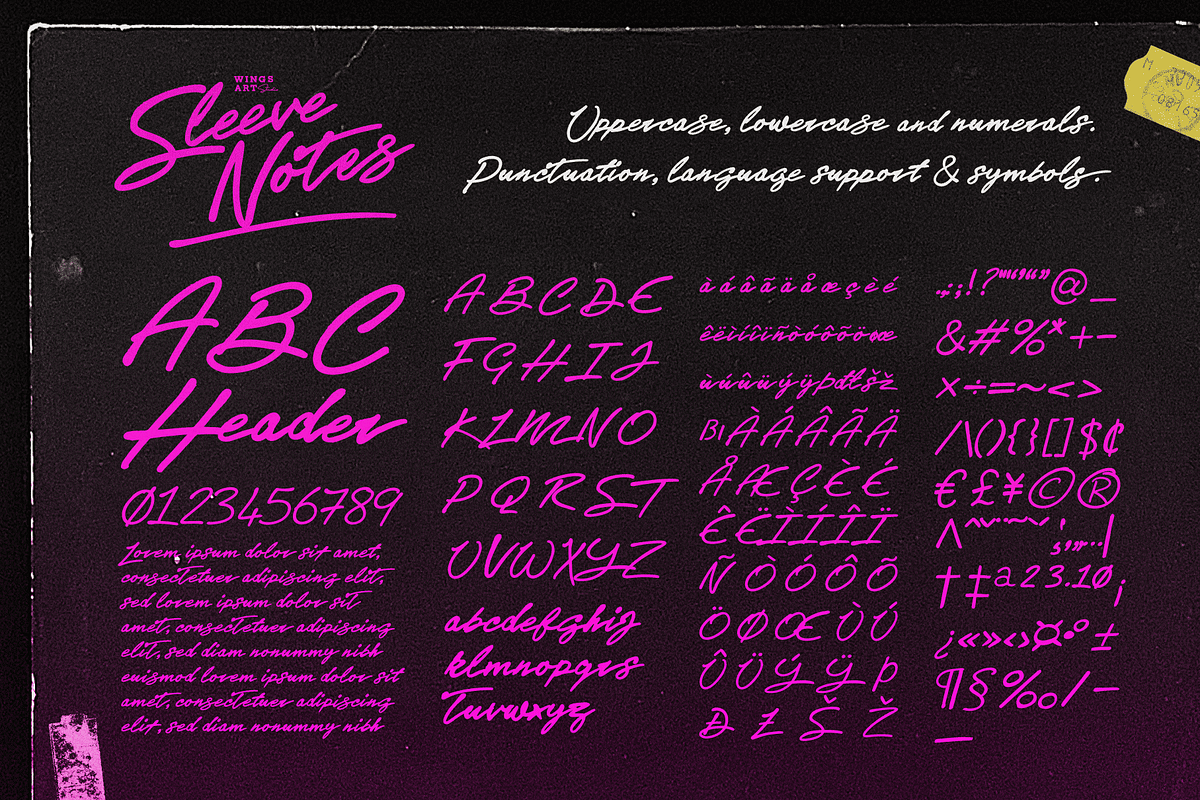 WINGS
ART Studio
Sleeve
Notes
Uppercase, lowercase and numerals.
Punctuation, language support & symbols.
ABC
Header
0123456789
Lorem ipsum dolor sit amet,
consectetuer adipiscing elit,
sed lorem ipsum dolor sit
amet, consectetuer adipiscing
elit, sed diam nonummy nibh
euismod lorem ipsum dolor sit
amet, consectetuer adipiscing
elit, sed diam nonummy nibh
ABCDE
FGHIJ
KLMNO
PQRST
UVWXYZ
abcdefghij
klmnopqrs
tuvwxyz
àáâãäåæçèé
êëìíîïñòóôõöøœ
ùúûüýÿþđłšž
ÀÁÂÃÄ
ÅÆÇÈÉ
ÊËÌÍÎÏ
ÑÒÓÔÕ
ÖØŒÙÚ
ÛÜÝŸÞ
ĐŁŠŽ
.,:;!?"'“‘’”@_
&#%*+-
×÷=~<>
/\(){}[]$¢
€£¥©®
†‡a23.10¡
¿«»‹›¤•º±
¶§‰/–
—